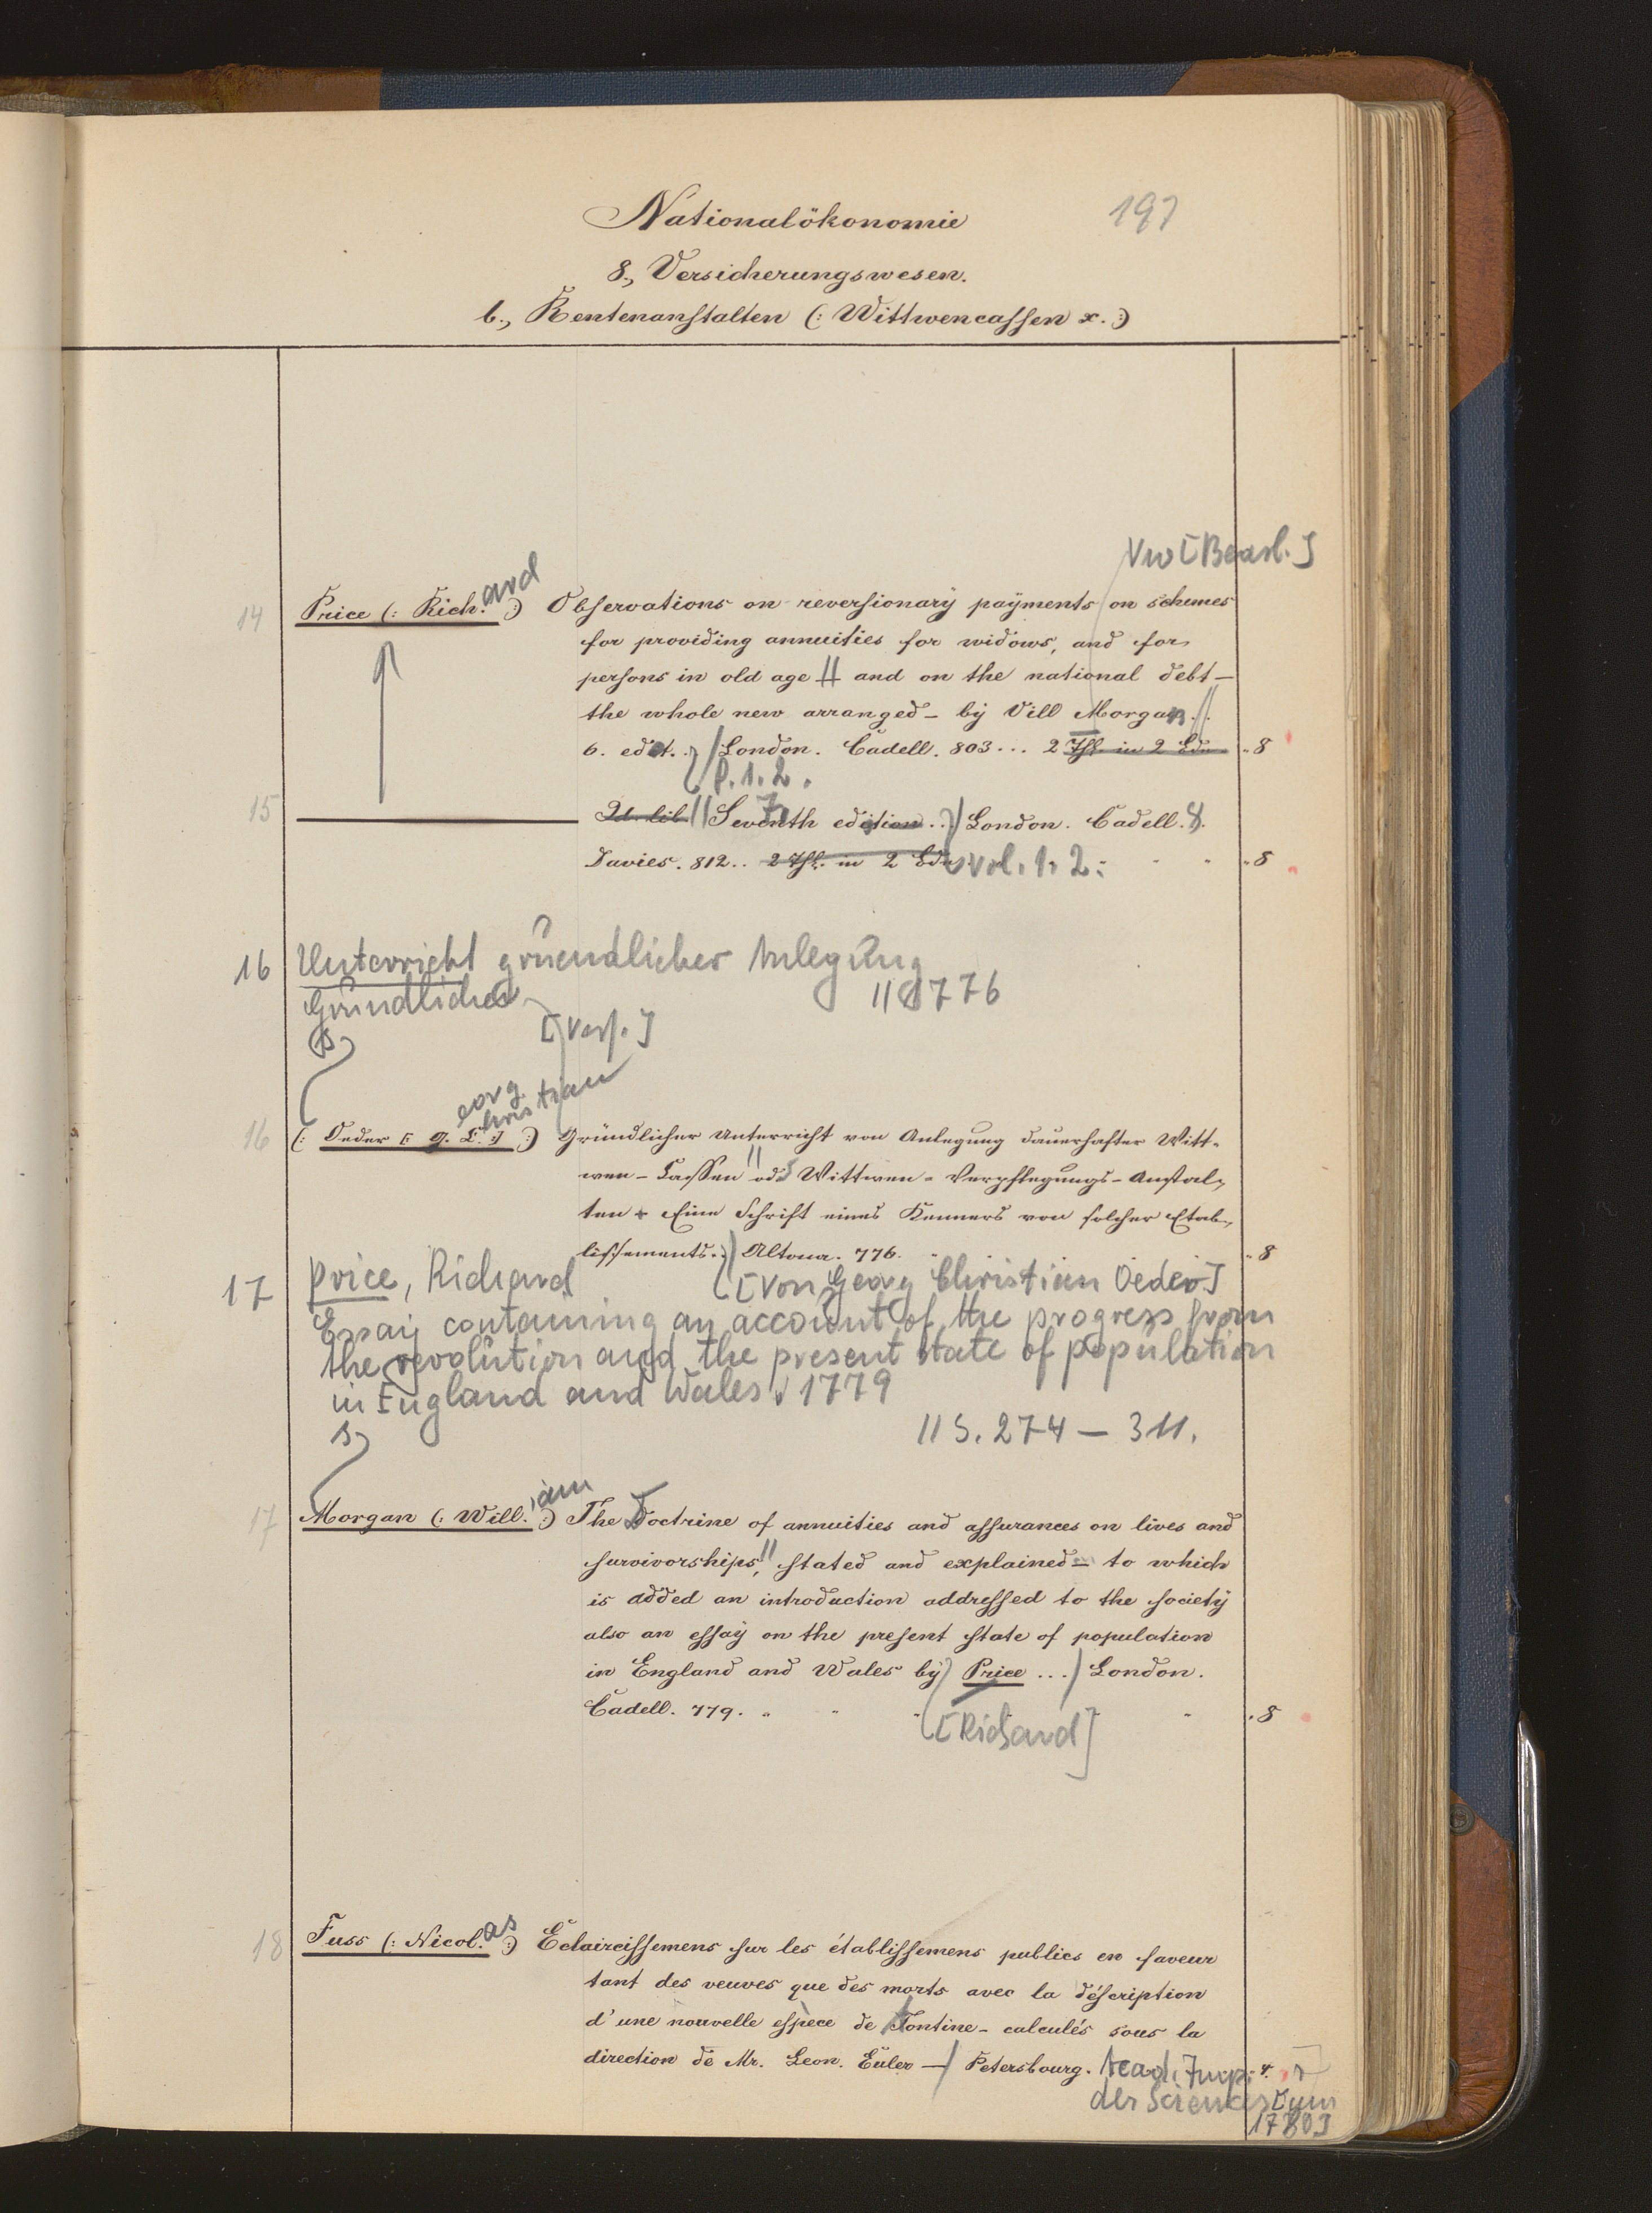 Nationalökonomie 197
8., Versicherungswesen.
b., Rentenanstalten (: Wittwencassen x. :)
Vw [Bearb.]
14 Price (: Rich.ard :) Observations on reversionary payments on schemes
for providing annuities for widows, and for
persons in old age // and on the national debt –
the whole new arranged – by Will Morgan //
6. edit. .. / London. Cadell. 803 ... 2 Thl. in 2 Bdn „ 8
P. 1. 2.
15 Id. lib. // Seventh edition .. / London. Cadell. &.
7
Davies. 812 .. 2 Thl. in 2 Bdn vol. 1. 2. „ 8
16 Unterricht gruendlicher Anlegung
Gründlicher // 1776
s. [Verf.]
eorg hristian
16 (: Oeder [: G. C. :] :) Gründlicher Unterricht von Anlegung dauerhafter Witt-
wen-Cassen // od. Wittwen-Verpflegungs-Anstal-
ten – Eine Schrift eines Kenners von solcher Etab-
lissements .. / Altona. 776. „ 8
17 Price, Richard [Von Georg Christian Oeder]
Essay containing an account of the progress from
the revolution and the present state of population
in England and Wales 1779
s. // S. 274 – 311.
17 Morgan (: Will.iam :) The Doctrine of annuities and assurances on lives and
survivorships, // stated and explained – to which
is added an introduction addressed to the society
also an essay on the present state of population
in England and Wales by Price ... / London.
Cadell. 779. „ „ „ 8
[Richard]
18 Fuss (: Nicol.as :) Eclaircissemens sur les établissemens publics en faveur
tant des veuves que des morts avec la déscription
d'une nouvelle espèce de Tontine – calculés sous la
direction de Mr. Leon. Euler – / Petersbourg. Acad. Imp. 4.
des Sciences [um
1780]